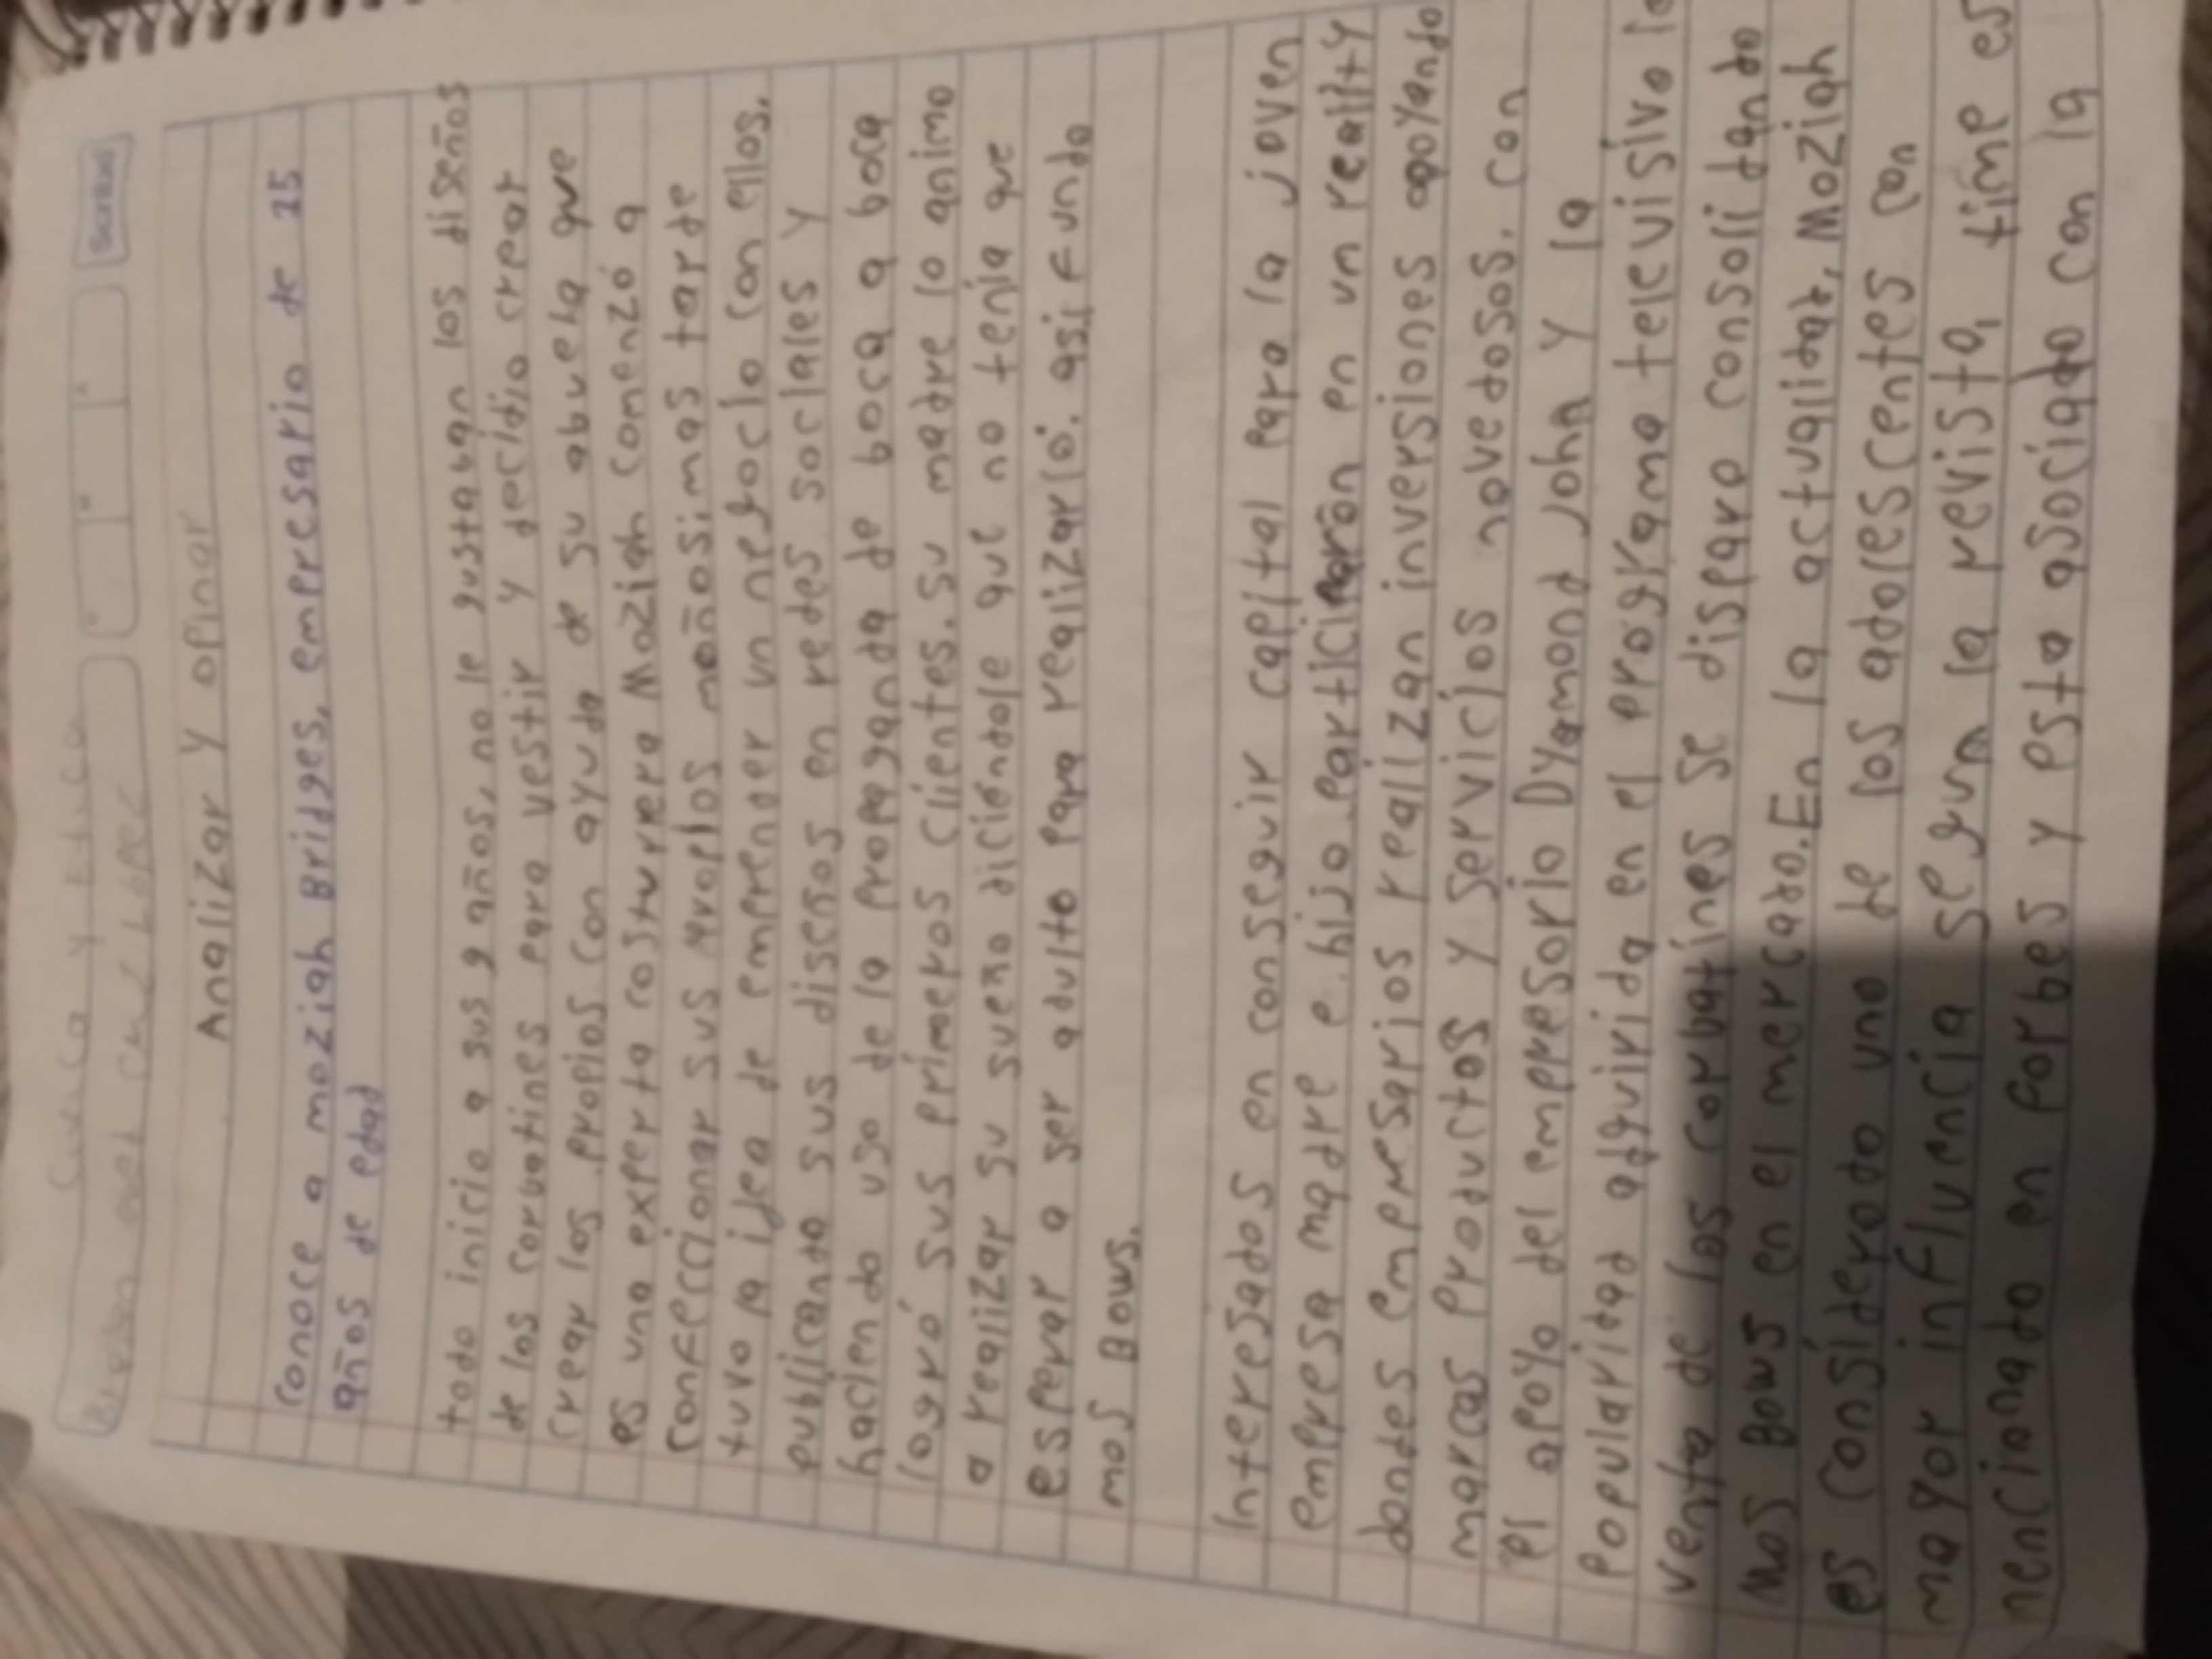 Civica y Etica
Analizar y opinar
Conoce a moziah Bridges, empresario de 15
años de edad
todo inicio a sus 9 años, no le gustaban los diseños
de los corbatines para vestir y decidio crear
crear los propios con ayuda de su abuela que
es una experta costurera Moziah comenzó a
confeccionar sus proplos moños; mas tarde
tuvo la idea de emprender un negoclo con ellos,
publicando sus diseños en redes soclales y
haclendo uso de la propaganda de boca a boca
logró sus primeros clientes. su madre lo animo
a realizar su sueño diciéndole que no tenía que
esperar a ser adulto para realizarló. asi, Fundo
mos Bows.
Interesados en conseguir capital para la joven
empresa madre e hijo participarón en un reality
dondes empresarios realizan inversiones apoyando
marcas productos y serviclos novedosos. con
el apoyo del empresorlo Dyamond John y la
popularidad adquirida en el programa televisivo la
venta de los corbatines se disparo consolidando
Mos Bows en el mercado. En la actualidad, Moziah
es considerado uno de los adolescentes con
mayor influencia segun la revista, time es
nencionado en Forbes y esta asociado con la